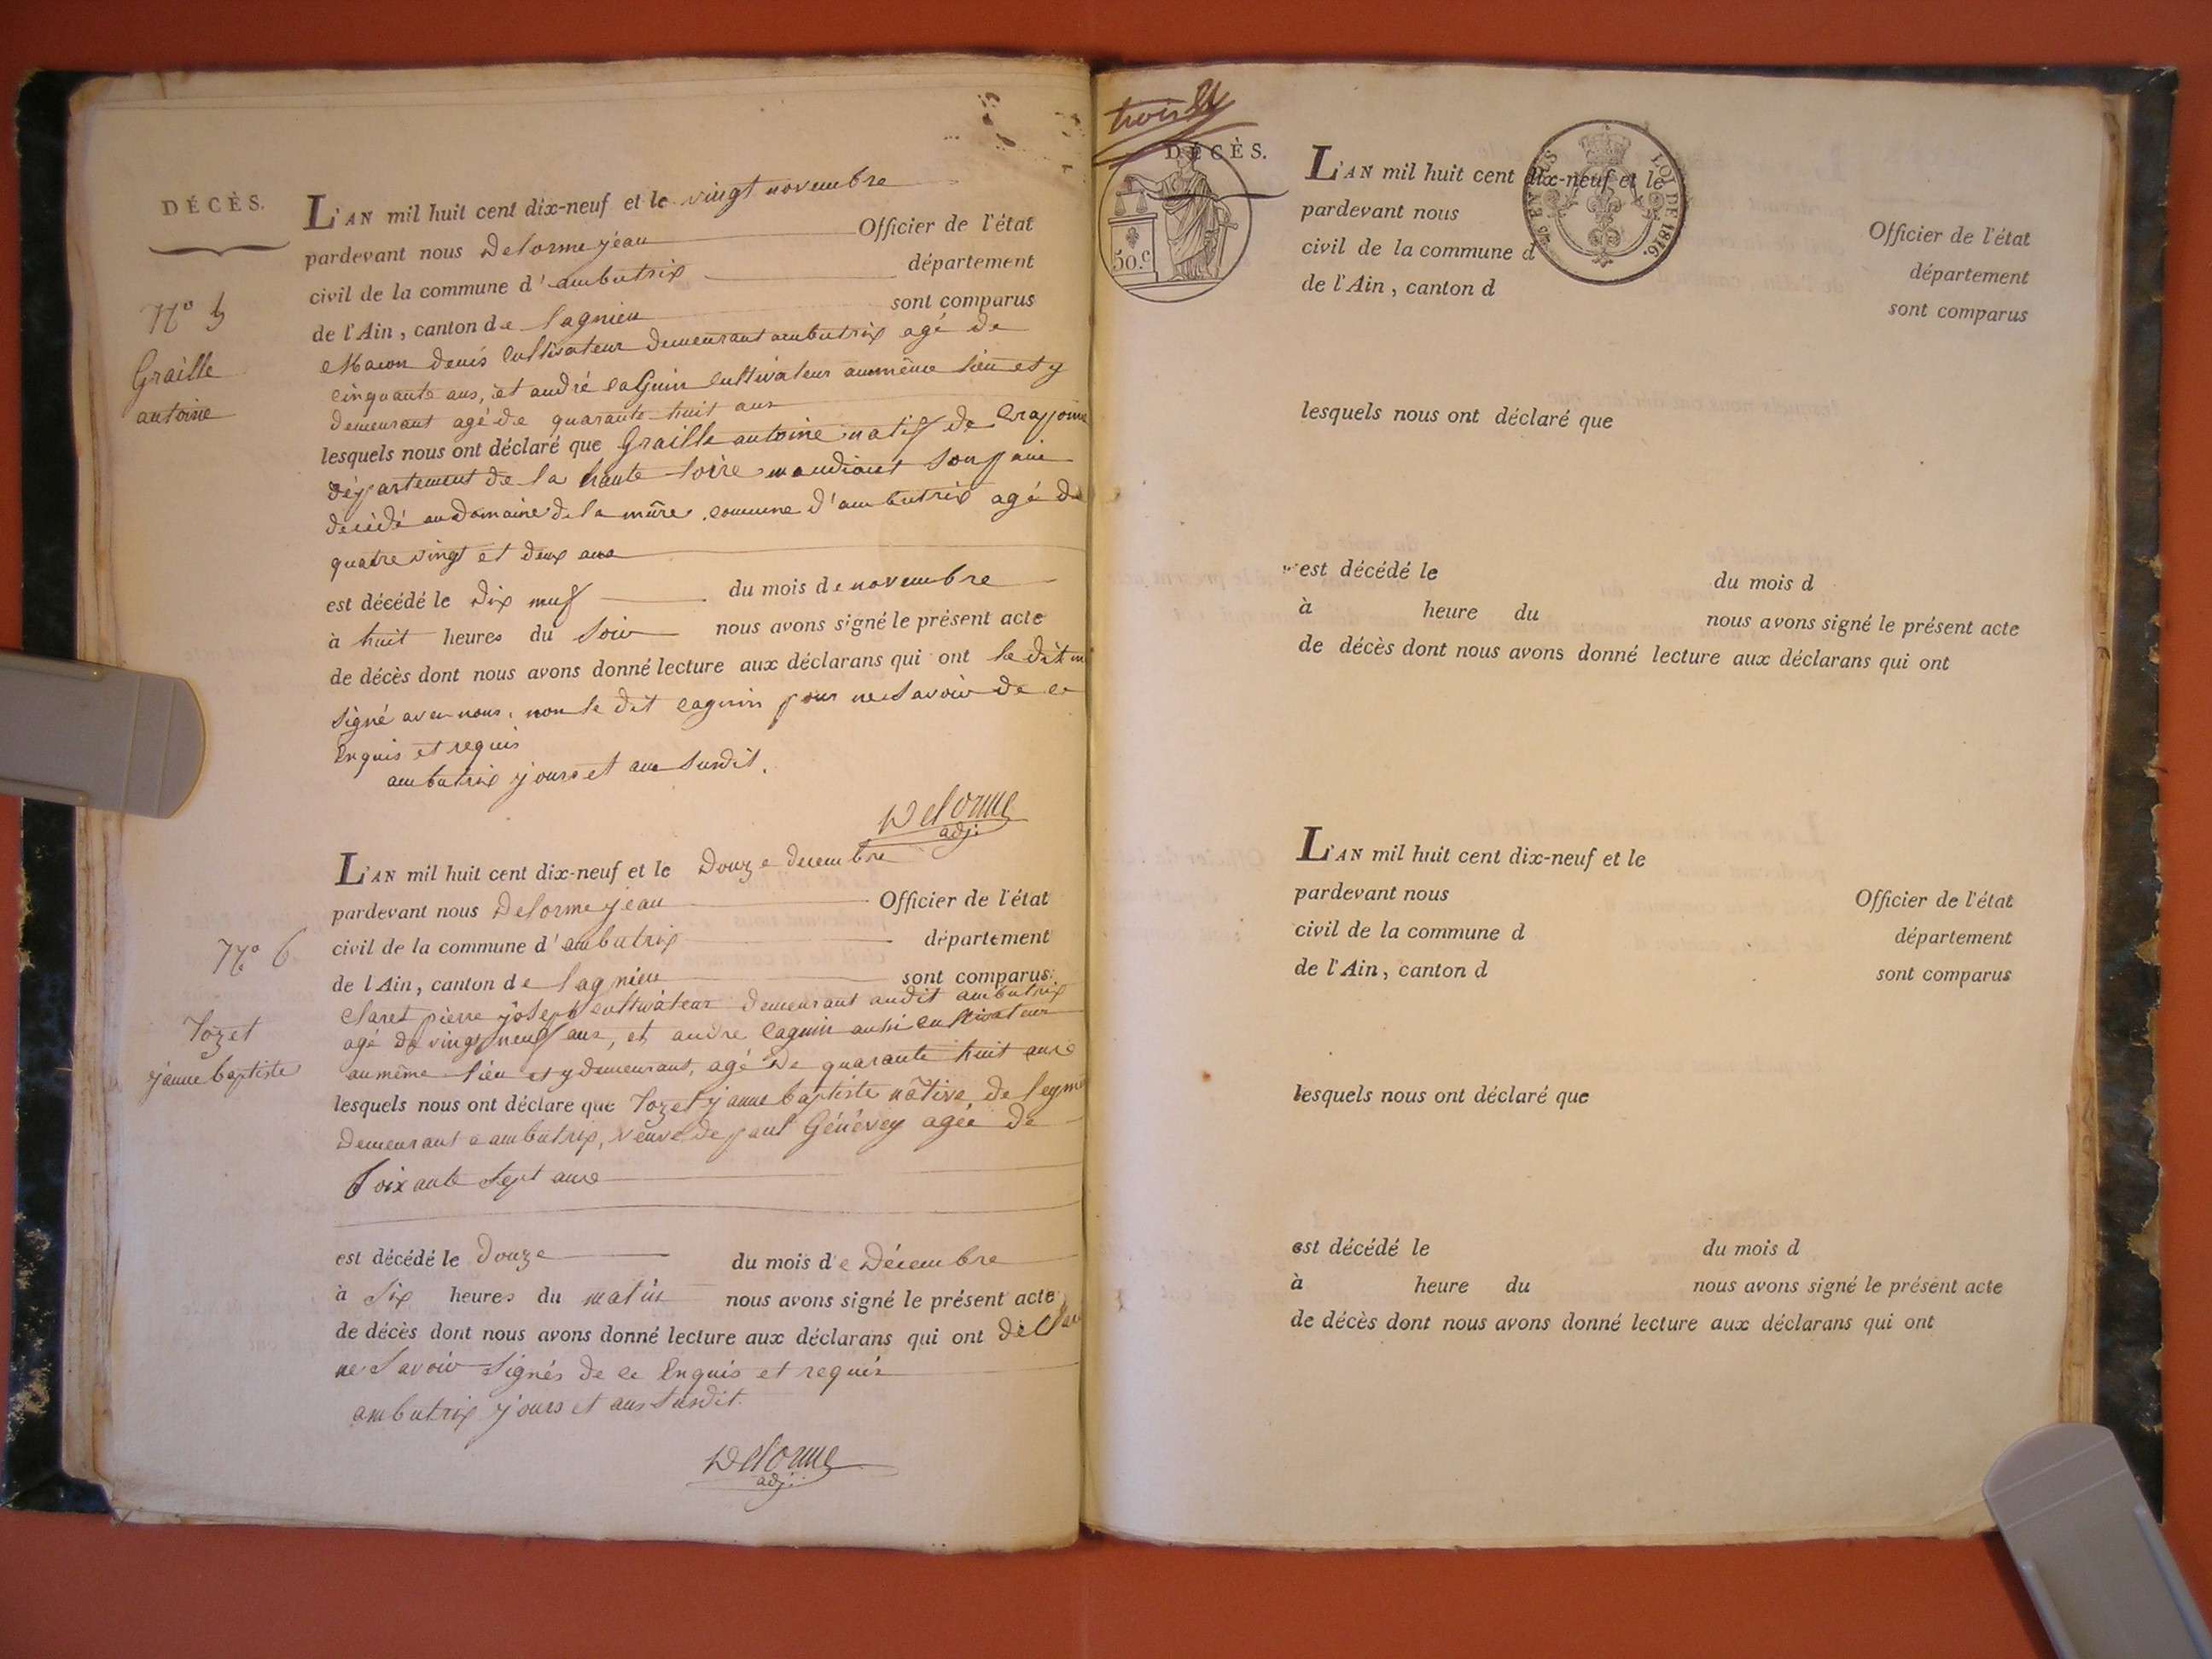 DÉCÈS.
L'AN mil huit cent dix-neuf et le vingt novembre
pardevant nous Delorme jean Officier de l'état
civil de la commune d'ambutrix département
de l'Ain, canton de lagnieu sont comparus
Macon denis cultivateur demeurant ambutrix agé de
cinquante ans, et andré caguin cultivateur au même lieu et y
demeurant agé de quarante huit ans
lesquels nous ont déclaré que Graille antoine natif de Craponne
département de la haute loire mandiant son pain
décédé au domaine de la mûre, commune d'ambutrix agé de
quatre vingt et deux ans
est décédé le dix neuf du mois de novembre
à huit heures du soir nous avons signé le présent acte
de décès dont nous avons donné lecture aux déclarans qui ont le dit
signé avec nous, non le dit caguin pour ne savoir de ce
enquis et requis
ambutrix jours et ans susdit.
Delorme
adj.
N° 5
Graille
antoine
L'AN mil huit cent dix-neuf et le Douze decembre
pardevant nous Delorme jean Officier de l'état
civil de la commune d'ambutrix département
de l'Ain, canton de lagnieu sont comparus
Claret pierre joseph cultivateur demeurant audit ambutrix
agé de vingt neuf ans, et andre caguin aussi cultivateur
au même lieu et y demeurant, agé de quarante huit ans
lesquels nous ont déclare que Tozet janne baptiste native de
demeurant a ambutrix, veuve de paul Génévey agée de
soixante sept ans
est décédé le douze du mois de Décembre
à six heures du matin nous avons signé le présent acte
de décès dont nous avons donné lecture aux déclarans qui ont
ne savoir signés de ce enquis et requis
ambutrix jours et ans susdit.
Delorme
adj.
N° 6
Tozet
janne baptiste
trois
DÉCÈS.
50.c
LOI DE 1816.
L'AN mil huit cent dix-neuf et le
pardevant nous Officier de l'état
civil de la commune d département
de l'Ain, canton d sont comparus
lesquels nous ont déclaré que
est décédé le du mois d
à heure du nous avons signé le présent acte
de décès dont nous avons donné lecture aux déclarans qui ont
L'AN mil huit cent dix-neuf et le
pardevant nous Officier de l'état
civil de la commune d département
de l'Ain, canton d sont comparus
lesquels nous ont déclaré que
est décédé le du mois d
à heure du nous avons signé le présent acte
de décès dont nous avons donné lecture aux déclarans qui ont